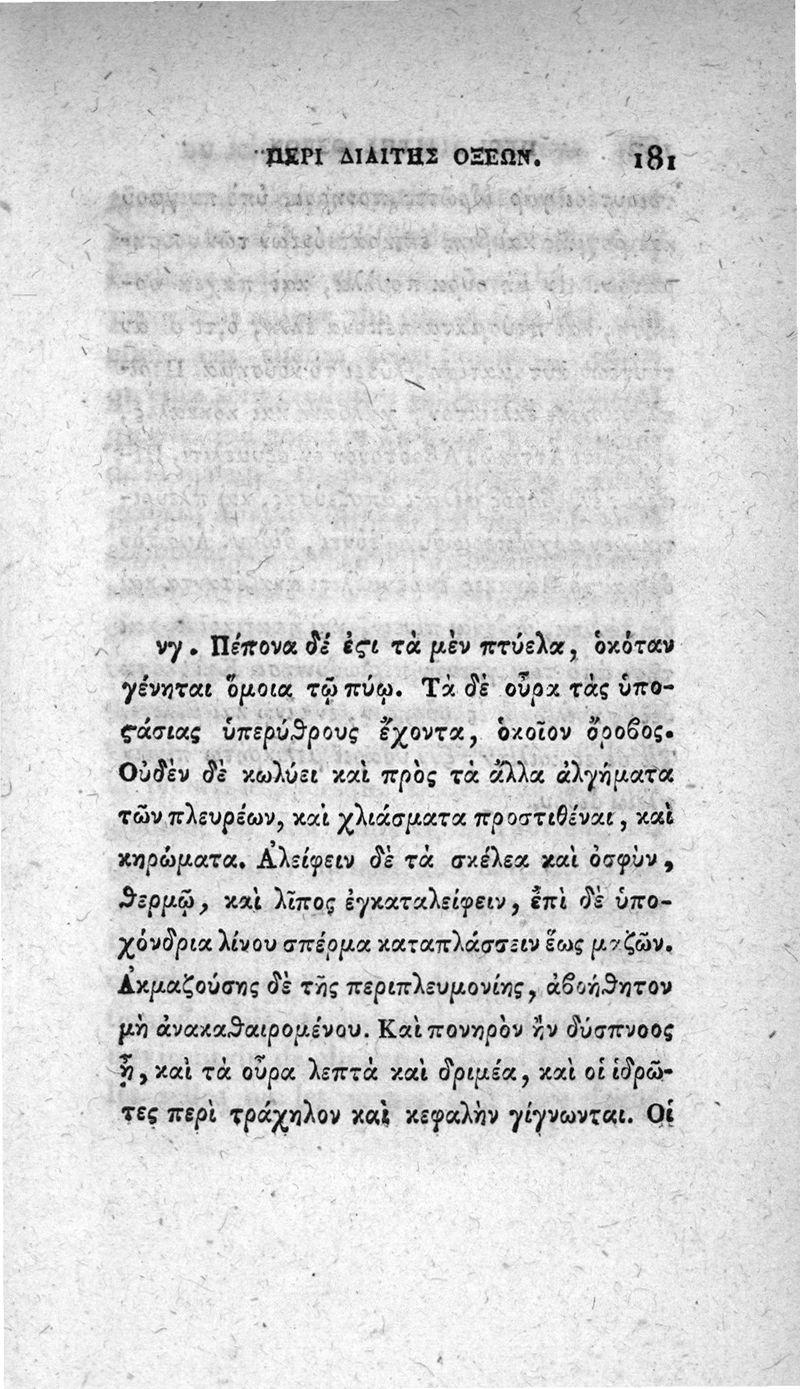 ΠΕΡΙ ΔΙΑΙΤΗΣ ΟΞΕΩΝ. 181
νγ. Πέπονα δέ ἐϛι τὰ μὲν πτύελα, ὁκόταν
γένηται ὅμοια τῷ πύῳ. Τὰ δὲ οὖρα τὰς ὑπο-
ϛάσιας ὑπερύθρους ἔχοντα, ὁκοῖον ὄροβος.
Οὐδὲν δὲ κωλύει καὶ πρὸς τὰ ἄλλα ἀλγήματα
τῶν πλευρέων, καὶ χλιάσματα προστιθέναι, καὶ
κηρώματα. Ἀλείφειν δὲ τὰ σκέλεα καὶ ὀσφὺν,
θερμῷ, καὶ λῖπος ἐγκαταλείφειν, ἐπὶ δὲ ὑπο-
χόνδρια λίνου σπέρμα καταπλάσσειν ἕως μαζῶν.
Ἀκμαζούσης δὲ τῆς περιπλευμονίης, ἀβοήθητον
μὴ ἀνακαθαιρομένου. Καὶ πονηρὸν ἢν δύσπνοος
ᾖ, καὶ τὰ οὖρα λεπτὰ καὶ δριμέα, καὶ οἱ ἱδρῶ-
τες περὶ τράχηλον καὶ κεφαλὴν γίγνωνται. Οἱ